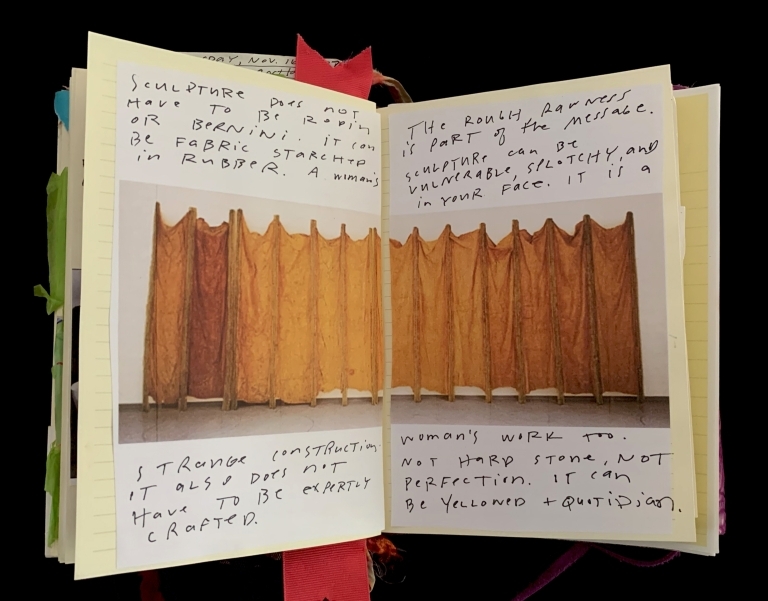 DAY, NOV. 16
SCULPTURE DOES NOT
HAVE TO BE RODIN
OR BERNINI. IT CAN
BE FABRIC STARCHED
in RUBBER. A woman's
STRANGE CONSTRUCTION.
IT ALSO DOES NOT
HAVE TO BE EXPERTLY
CRAFTED.
THE ROUGH RAWNESS
is PART OF the MESSAGE.
SCULPTURE can BE
VULNERABLE, SPLOTCHY, and
in YOUR FACE. IT IS A
WOMAN'S WORK TOO.
NOT HARD STONE, NOT
PERFECTION. IT can
BE YELLOWED + QUOTIDIAN.